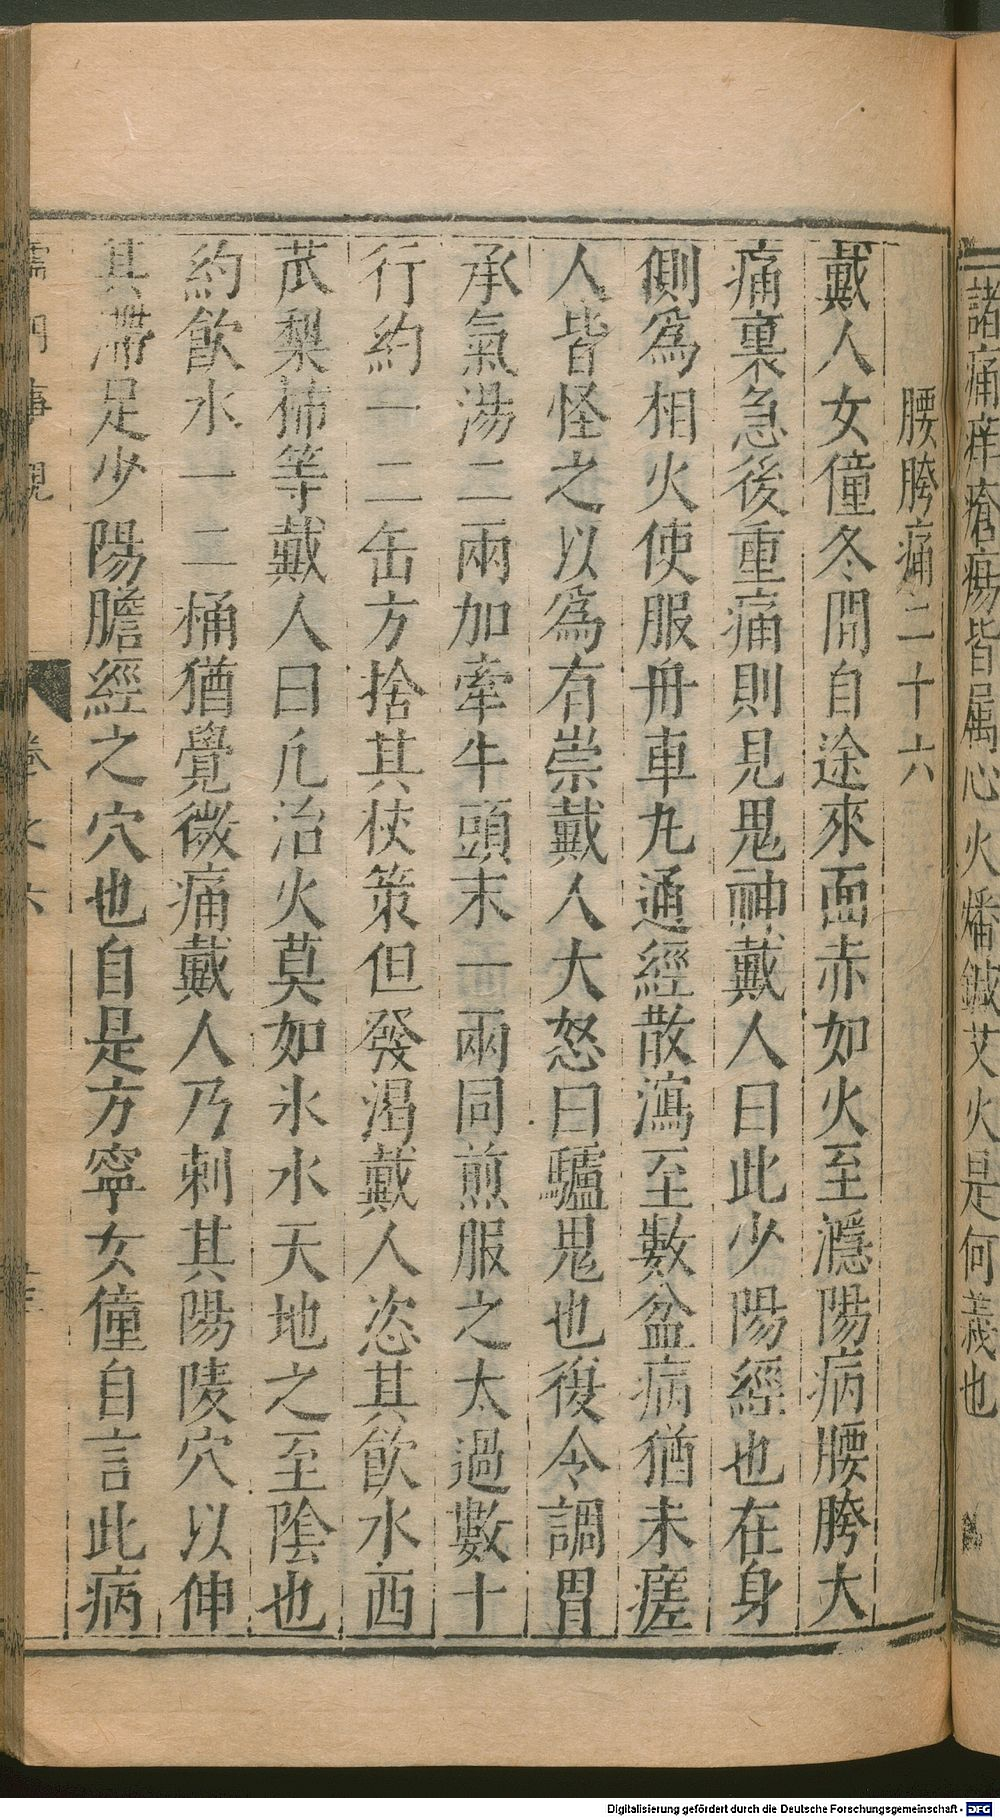 諸痛痒瘡瘍皆屬心火燔鍼艾火是何義也
腰胯痛二十六
戴人女僮冬間自途來面赤如火至㶏陽病腰胯大
痛裏急後重痛則見鬼神戴人曰此少陽經也在身
側爲相火使服舟車丸通經散瀉至數盆病猶未瘥
人皆怪之以爲有祟戴人大怒曰驢鬼也復令調胃
承氣湯二兩加牽牛頭末一兩同煎服之太過數十
行約一二缶方捨其杖策但發渴戴人恣其飲水西
苽梨柿等戴人曰凢治火莫如氷水天地之至陰也
約飲水一二桶猶覺微痛戴人乃刺其陽陵穴以伸
其滯足少陽膽經之穴也自是方寧女僮自言此病
儒門事親 卷之六
Digitalisierung gefördert durch die Deutsche Forschungsgemeinschaft - DFG